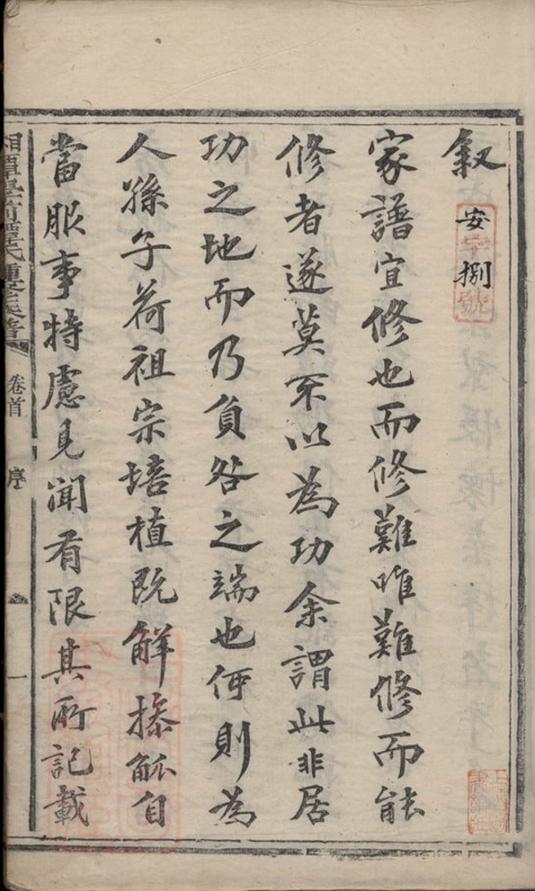 叙
安字捌號
家譜宜修也而修難唯難修而能
修者遂莫不以為功余謂此非居
功之地而乃負咎之端也何則為
人孫子荷祖宗培植既解操觚自
當服事特慮見聞有限其所記載
卷首 序 一